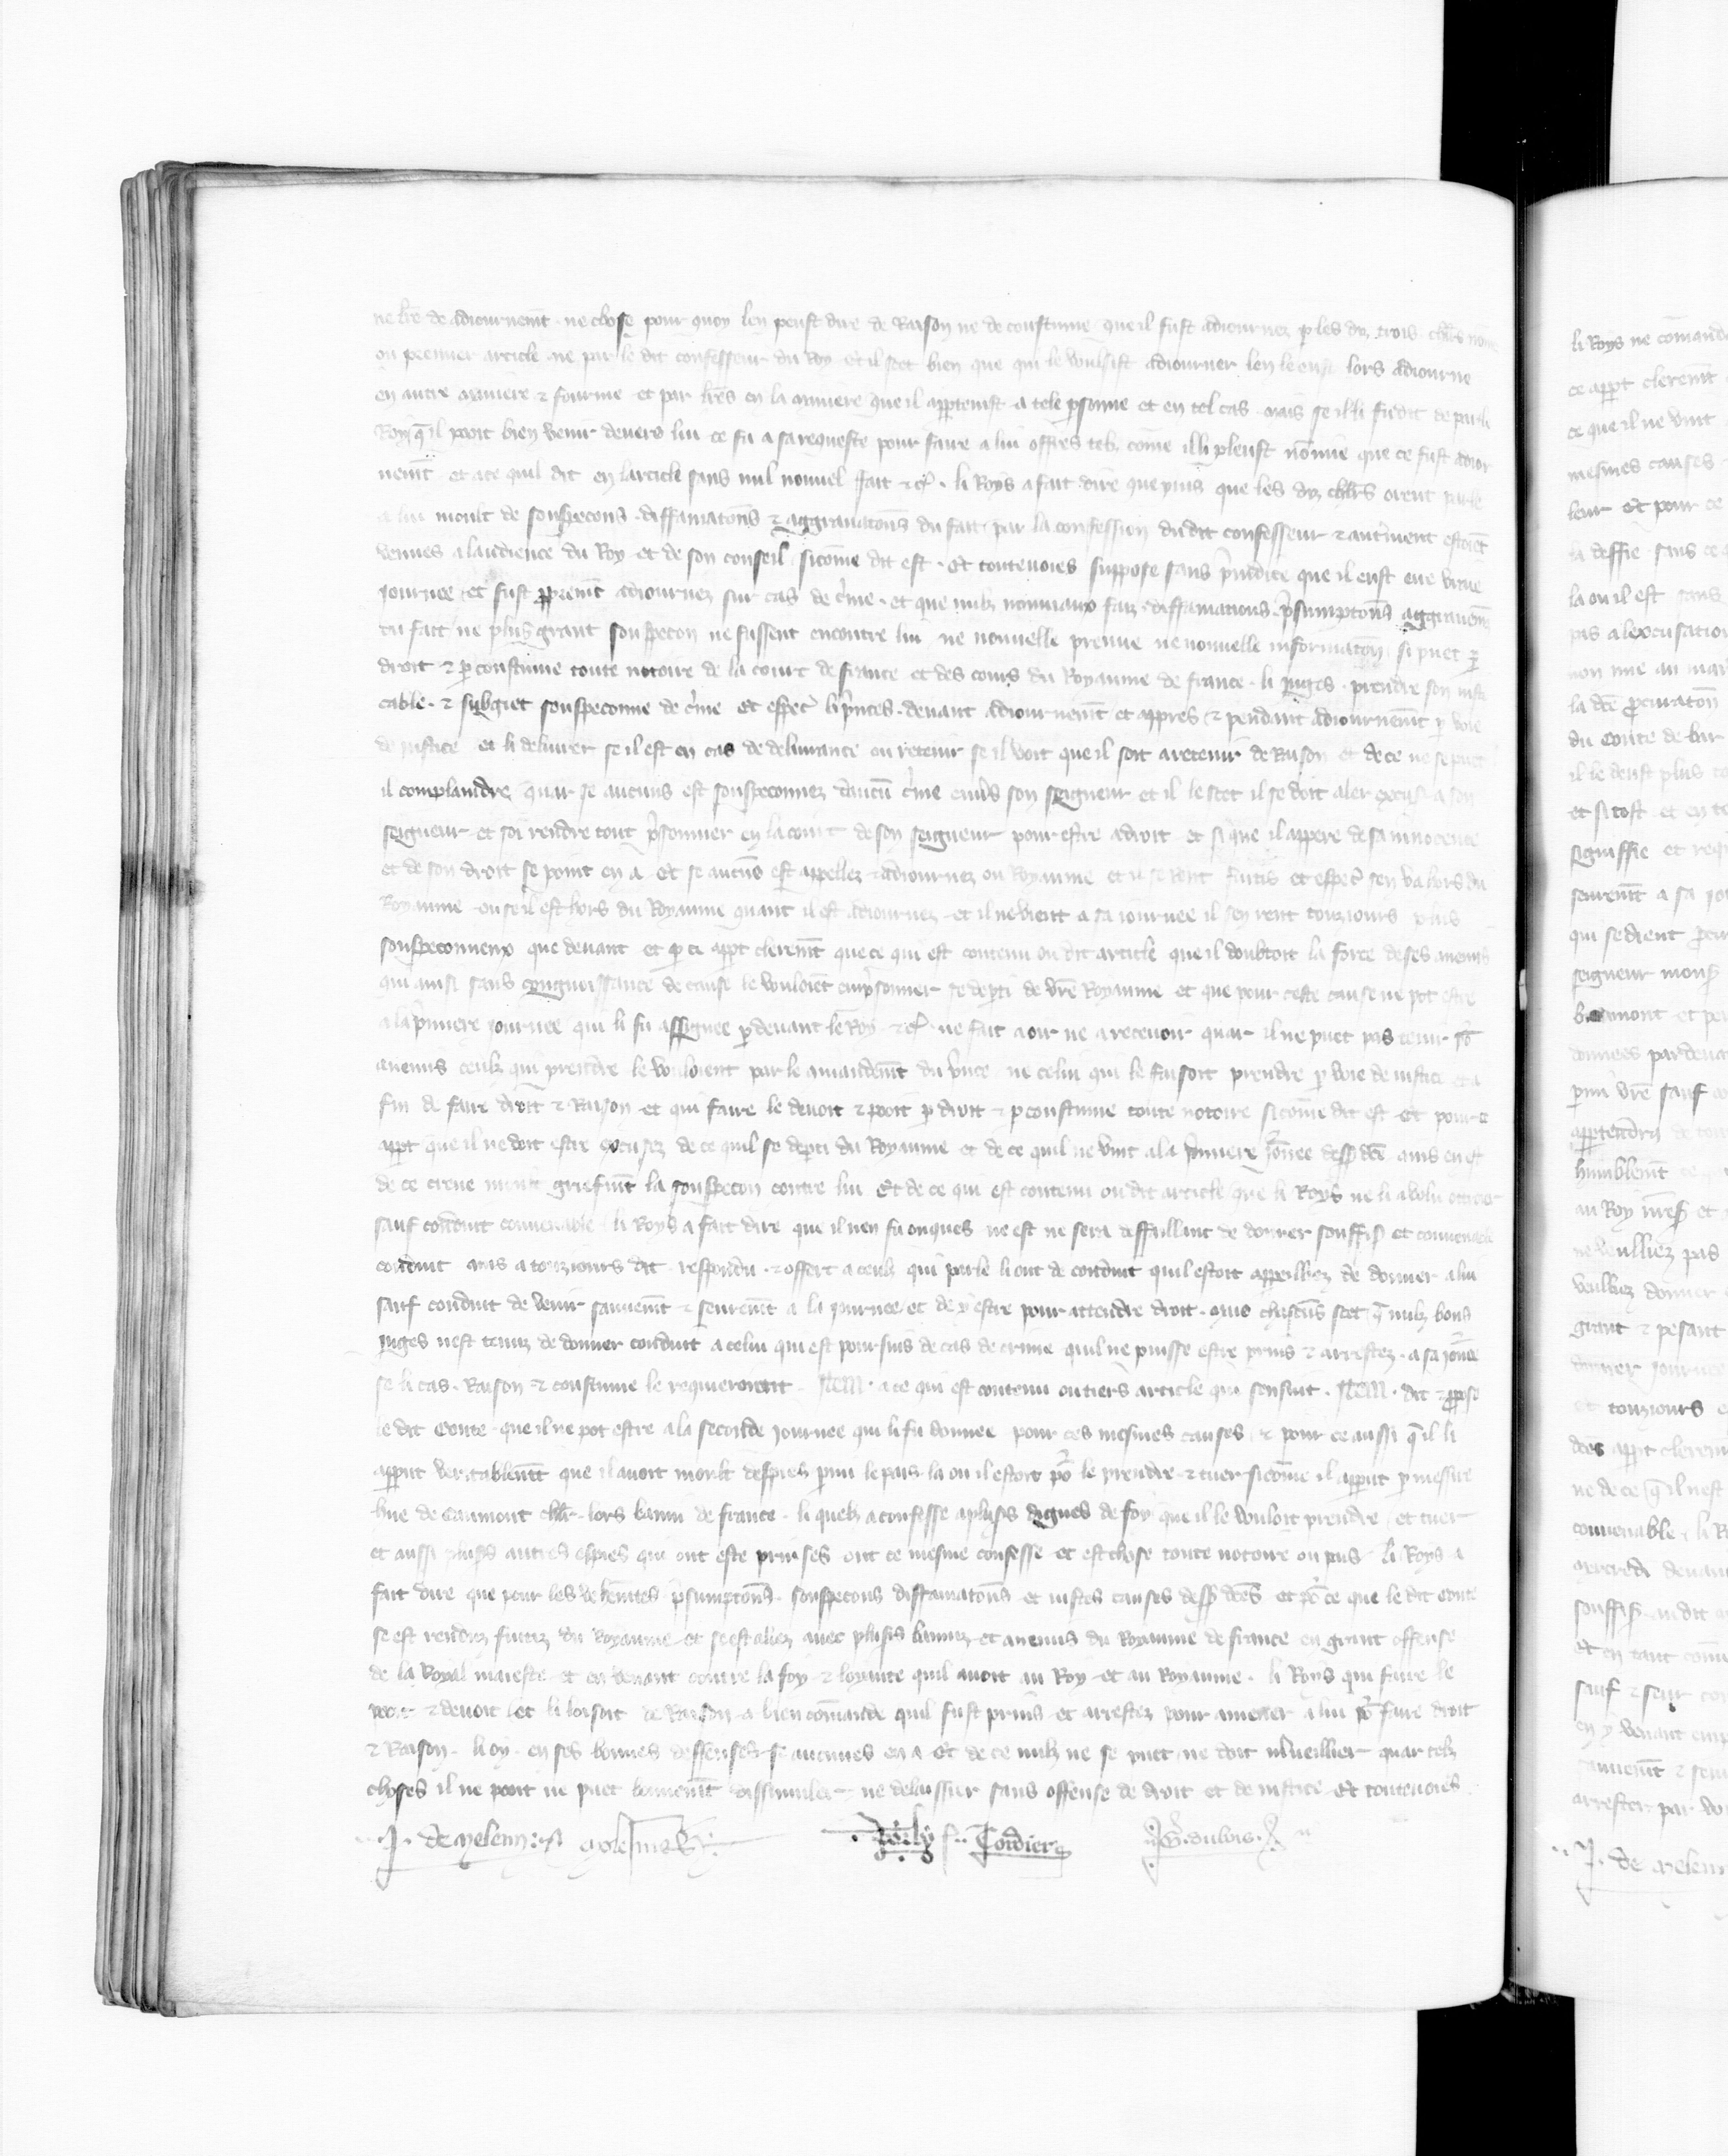 ne lr̃e de adiournem̃t ne chose pour quoy len peust dire de Raison ne de coustume que il fust adiournez p̱ les diz trois chlr̃s nom
ou premier article ne par le dit confesseur du Roy Et il scet bien que qui le voulsist adiourner len leust lors adiourne
en autre maniere ⁊ fourme et par lr̃es en la maniere que il app̱tenist a tele p̱sonne et en tel cas mais se il li fu dit de par li
Roy q̃ il pooit bien venir devers lui ce fu a sa requeste pour faire a lui offres telz cõme il li pleust nõ mie que ce fust adior
nem̃t et a ce quil dit en larticle sans nul nouvel fait ⁊cͣ · li Roys a fait dire que puis que les diz chlr̃s orent parle
a lui moult de souspecons diffamatoñs ⁊ aggravatoñs du fait par la confession dudit confesseur ⁊ autrement estoiẽt
venues a laudience du Roy et de son conseil sicõme dit est · Et toutevoies suppose sans p̃iudice que il eust eue bñe
journee et fust p̱prem̃t adiournez sur cas de c̃me · et que nulz nouviaux faiz diffamations p̃sumptoñs aggravem̃s
du fait ne plus grant souspecon ne fussent encontre lui ne nouvelle preuve ne nouvelle informatoñ si puet p̱
droit ⁊ p̱ coustume toute notoire de la court de france et des cours du Royaume de france · li juges · prendre son iusti
cable · ⁊ subgiet souspeconne de c̃me et esp̱ec̃ li p̃nces · devant adiournem̃t et apres ⁊ pendant adiournem̃t p̱ voie
de iustice et li delivrer se il est en cas de delivrance ou retenir se il voit que il soit a retenir de Raison et de ce ne se puet
il complaindre quar se aucuns est souspeconnez daucũ c̃me envers son seigneur et il le scet il se doit aler excuser a son
seigneur et soi rendre tout p̃sonnier en la court de son seigneur pour estre a droit et si que il appere de sa innocence
et de son droit se point en a Et se aucuns est appellez ⁊ adiournez ou Royaume et il se rent fuitis et esp̱ec̃ sen va hors du
Royaume ou se il est hors du Royaume quant il est adiournez et il ne vient a sa iournee il sen rent touziours plus
souspeconneux que devant et p̱ ce app̱t clerem̃t que ce qui est contenu ou dit article que il doubtoit la force de ses anemis
qui ainsi sans congnoissance de cause le vouloiẽt emp̃sonner se dep̱ti de vr̃e Royaume et que pour ceste cause ne pot estre
a la p̃miere journee qui li fu assignee p̱ devant le Roy ⁊cͣ · ne fait a oir ne a recevoir quar il ne puet pas tenir ses
anemis ceulz qui prendre le vouloient par le mandem̃t du p̃nce ne celui qui le faisoit prendre p̱ voie de iustice et a
fin de faire droit ⁊ Raison et qui faire le devoit ⁊ pooit p̱ droit ⁊ p̱ coustume toute notoire sicõme dit est Et pour ce
app̱t que il ne doit estre excusez de ce quil se dep̱ti du Royaume et de ce quil ne vint a la p̃miere jõnee dessp̱ dc̃e ains en est
de ce creue moult griefm̃t la souspecon contre lui Et de ce qui est contenu ou dit article que li Roys ne li a volu ottroier
sauf conduit convenable li Roys a fait dire que il nen fu onques ne est ne sera deffaillant de donner souffis̃ et convenable
conduit ains a touziours dit respondu ⁊ offert a ceulz qui parle li ont de conduit quil estoit appeilliez de donner a lui
sauf conduit de venir sauvem̃t ⁊ seurem̃t a la journee et de y estre pour attendre droit mais chascuns scet q̃ nulz bons
juges nest tenuz de donner conduit a celui qui est poursuis de cas de crime quil ne puisse estre prins ⁊ arrestez a sa jõnee
se li cas · Raison ⁊ coustume le requeroient · Item · a ce qui est contenu ou tiers article qui sensuit · Item · dit ⁊ p̱pose
le dit Conte que il ne pot estre a la seconde journee qui li fu donnee pour ces mesmes causes ⁊ pour ce aussi q̃ il li
apparut veritablem̃t que il avoit moult despies p̱mi le pais la ou il estoit põ le prendre ⁊ tuer sicõme il apparut p̱ messire
hue de Caumont chlr̃ · lors banni de france · li quelz a confesse a plus̃s dignes de foy que il le vouloit prendre et tuer
et aussi plus̃s autres espies qui ont este prinses ont ce mesme confesse et est chose toute notoire ou pais li Roys a
fait dire que pour les vehem̃tes p̃sumptoñs · souspecons diffamatoñs et iustes causes dessp̱ dc̃es et põ ce que le dit Conte
se est renduz fuitiz du Royaume et se est aliez avec plus̃s banniz et anemis du Royaume de france en grant offense
de la Royal maieste et en venant contre la foy ⁊ loyaute quil avoit au Roy et au Royaume · li Roys qui faire le
pooit ⁊ devoit et li loisoit de Raison a bien cõmande quil fust prins et arrestez pour amener a lui põ faire droit
⁊ Raison · li oy · en ses bonnes deffenses se aucunes en a Et de ce nulz ne se puet ne doit m̃veillier quar telz
choses il ne pooit ne puet bonnem̃t dissimuler ne delaissier sans offense de droit et de iustice Et toutevoies
J · de Meleun
Cordier
G · dubois
li Roys ne cõmanda
ce app̱t clerem̃t
ce que il ne vint
mesmes causes
leur Et pour ce
la deffie sans ce
la ou il est sans
pas a lexcusation
non mie au mar
la dc̃e p̱curatoñ
du Conte de bar
il le deust plus
et si tost et en
signiffie et req
seurem̃t a sa jo
qui se dient p̱cur
seigneur mons̃
beaumont et par
donnees pardevant
p̱mi vr̃e sauf
app̱tendra
humblem̃t
au Roy
ne veulliez pas
veulliez donner
grant ⁊ pesant
donner journee
et touziours
dc̃es app̱t clerem̃
ne de ce q̃ il nest
convenable · li R
devant
souffis̃
Et en tant cõm
sauf ⁊ seur con
en y venant emp
sauvem̃t ⁊ seur
arrester par vo
J · de Meleun